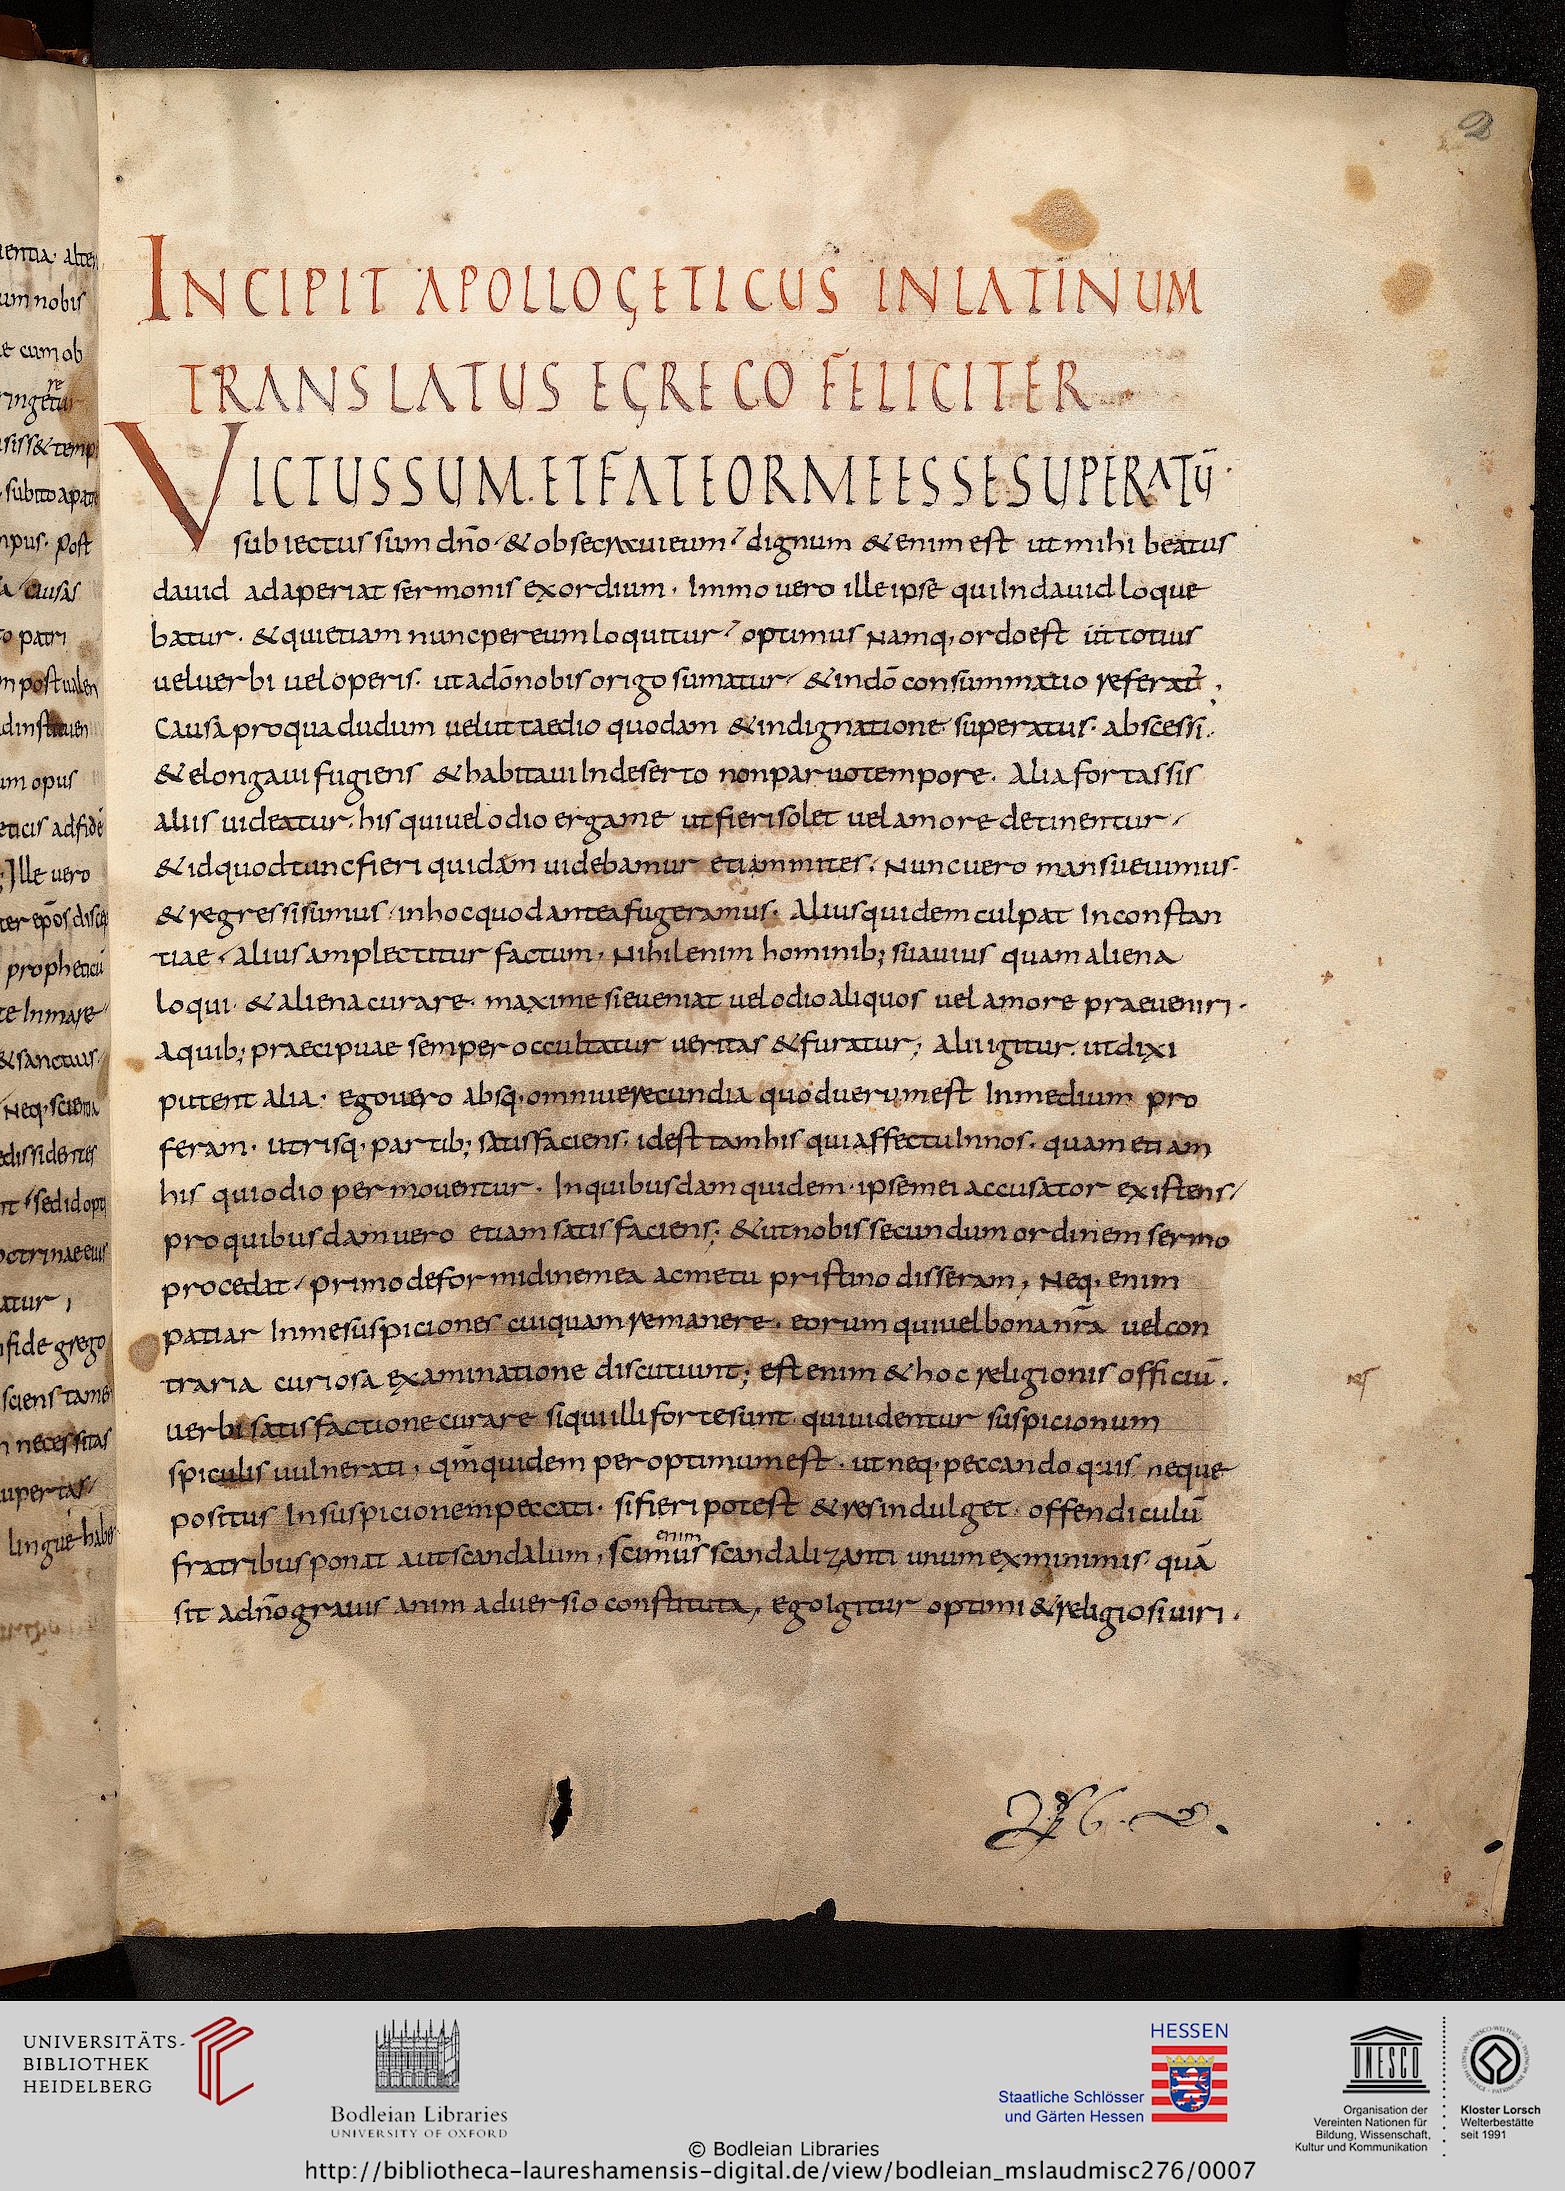 2
INCIPIT APOLLOGETICUS INLATINUM
TRANSLATUS EGRECO FELICITER
VICTUSSUM. ETFATEORMEESSESUPERATū·
subiectus sum dño · & obsecraui eum dignum &enim est ut mihi beatus
dauid adaperiat sermonis exordium · Immo uero ille ipse qui In dauid loque
batur · & qui etiam nunc per eum loquitur optimus Namq; ordo est ut totius
uel uerbi uel operis · ut a dō nobis origo sumatur & in dō consummatio referat̃ ,
Causa pro qua dudum uelut taedio quodam & indignatione superatus · abscessi ·
& elongaui fugiens & habitaui In deserto non paruo tempore · Alia fortassis
aliis uideatur · his qui uel odio erga me ut fieri solet uel amore detinentur
& id quod tunc fieri quidam uidebamur etiam mites · Nunc uero mansueuimus ·
& regressi sumus in hoc quod antea fugeramus · Alius quidem culpat Inconstan
tiae · alius amplectitur factum , Nihil enim hominib; suauius quam aliena
loqui · & aliena curare · maxime si eueniat uel odio aliquos uel amore praeueniri ·
A quib; praecipuae semper occultatur ueritas & furatur ; Alii igitur · ut dixi
putent alia · ego uero absq; omni uerecundia quod uerum est In medium pro
feram · utrisq; partib; satisfaciens · id est tam his qui affectu In nos · quam etiam
his qui odio permouentur · In quibusdam quidem ipse mei accusator existens
pro quibusdam uero etiam satisfaciens ; & ut nobis secundum ordinem sermo
procedat primo de formidine mea ac metu pristino disseram , Neq; enim
patiar In me suspiciones cuiquam remanere · eorum qui uel bona nr̃a uel con
traria curiosa examinatione discutiunt ; est enim & hoc religionis officiū ·
uerbi satisfactione curare si qui illi forte sunt qui uidentur suspicionum
spiculis uulnerati , qm̃ quidem peroptimum est · ut neq; peccando quis neque
positus In suspicionem peccati · si fieri potest & res indulget · offendiculū
fratribus ponat aut scandalum , scimus enim scandalizanti unum ex minimis quā
sit a dño grauis animaduersio constituta , ego Igitur optimi & religiosi uiri ·
UNIVERSITÄTS-
BIBLIOTHEK
HEIDELBERG
Bodleian Libraries
UNIVERSITY OF OXFORD
HESSEN
Staatliche Schlösser
und Gärten Hessen
UNESCO
Organisation der
Vereinten Nationen für
Bildung, Wissenschaft,
Kultur und Kommunikation
Kloster Lorsch
Welterbestätte
seit 1991
© Bodleian Libraries
http://bibliotheca-laureshamensis-digital.de/view/bodleian_mslaudmisc276/0007